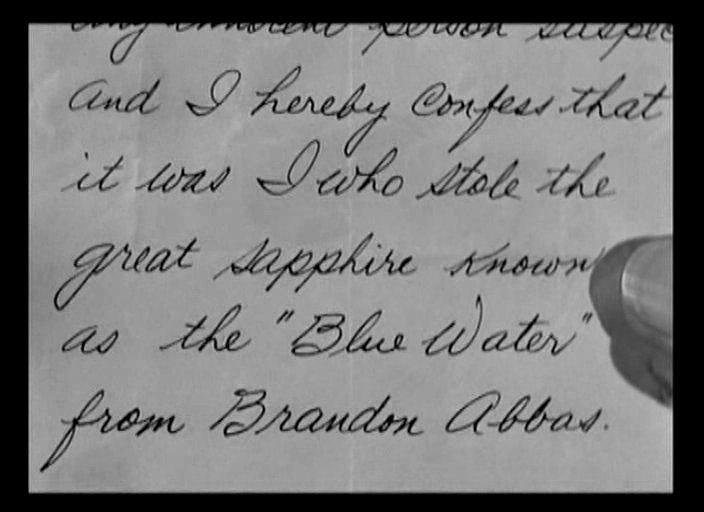 any innocent person suspec
and I hereby confess that
it was I who stole the
great sapphire known
as the "Blue Water"
from Brandon Abbas.